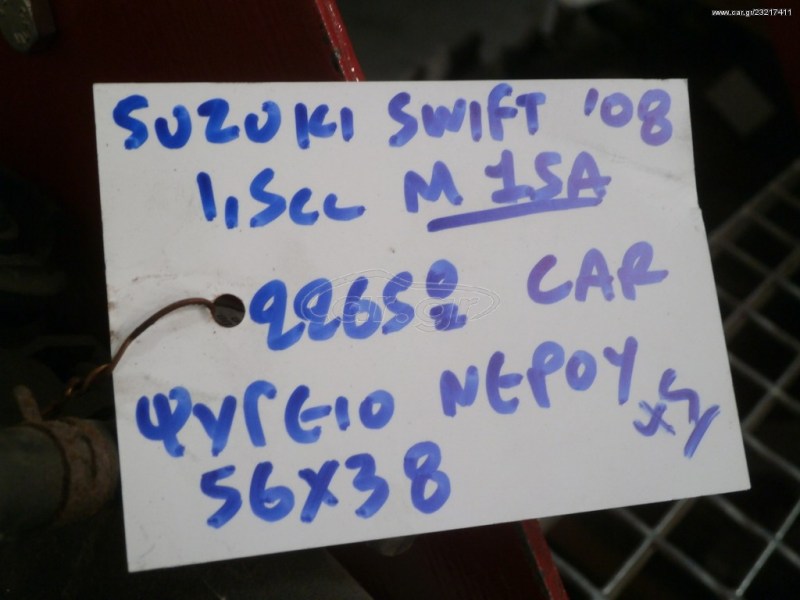 www.car.gr/23217411
SUZUKI SWIFT '08
1,5cc M 15A
CAR
ΨΥΓΕΙΟ ΝΕΡΟΥ
56X38